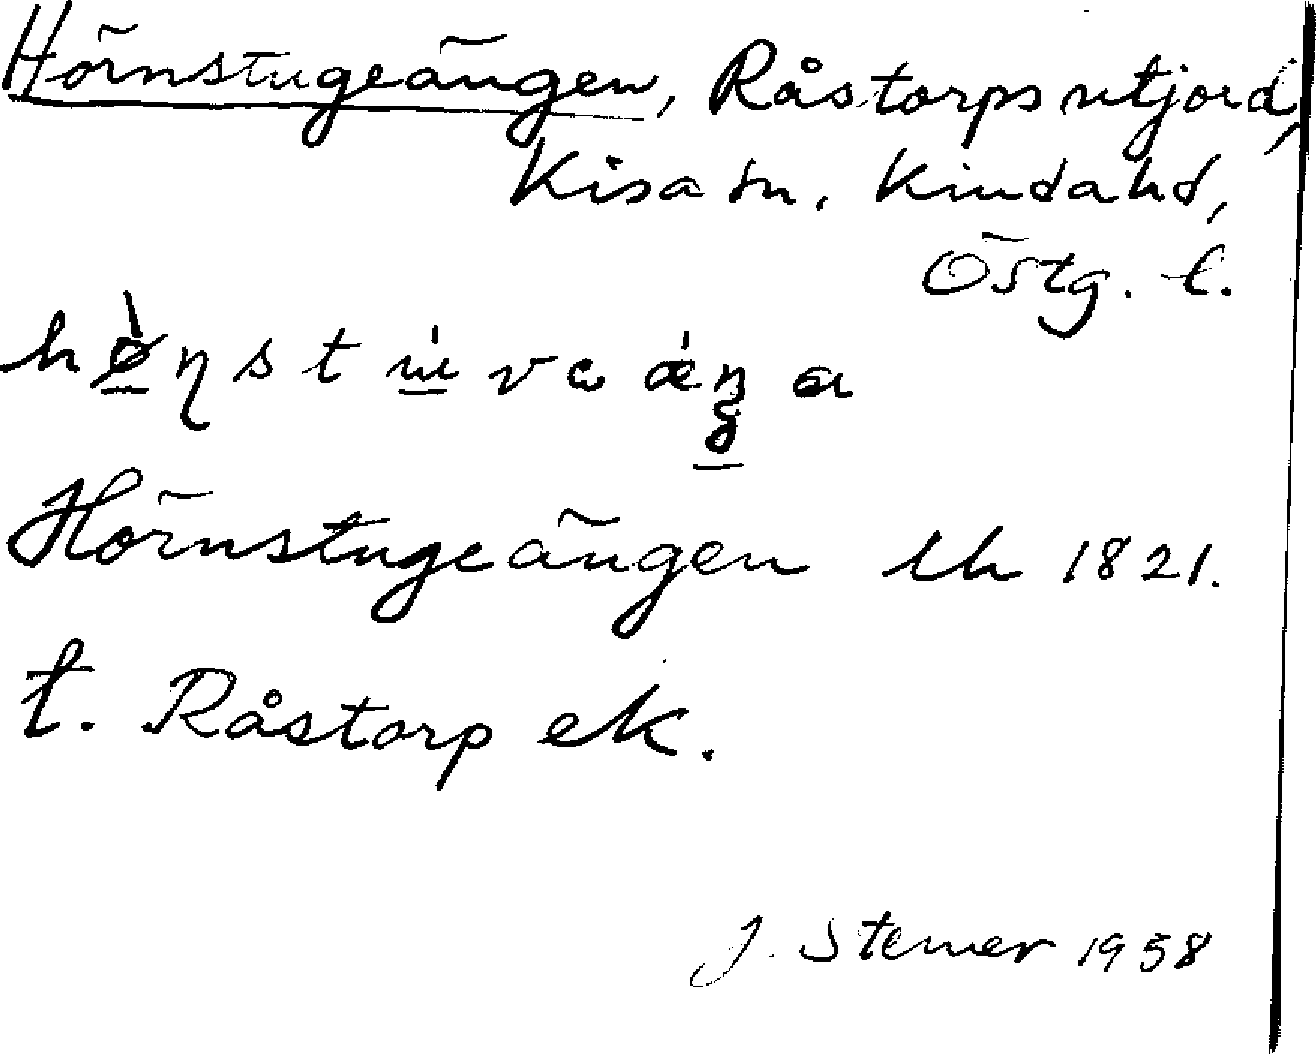 Hörnstugeängen, Råstorps utjord,
Kisa sn. Kinda hd,
Östg. l.
Hörnstugeängen lh 1821.
t. Råstorp ek.
J. Stenier 1958